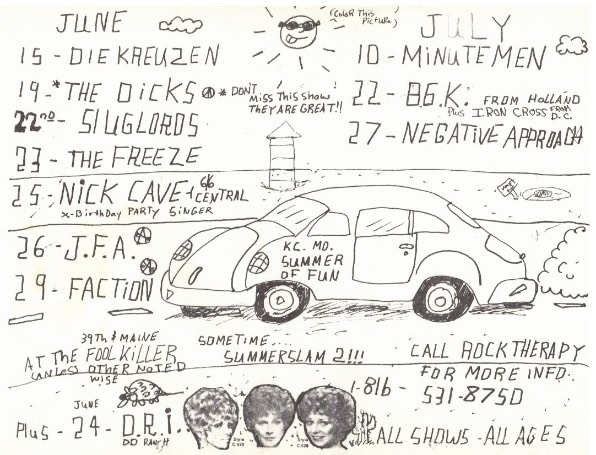 JUNE
(COLOR THIS PICTURE)
JULY
15 - DIE KREUZEN
19 - * THE DICKS
* DON'T MISS THIS SHOW
THEY ARE GREAT!!
22ND - SLUGLORDS
23 - THE FREEZE
25 - NICK CAVE + 6/6 CENTRAL
X-BirthDay PARTY SINGER
26 - J.F.A.
29 - FACTION
10 - MINUTEMEN
22 - B.G.K. FROM HOLLAND
Plus IRON CROSS FROM D.C.
27 - NEGATIVE APPROACH
K.C. MO.
SUMMER
OF FUN
39TH & MAINE
AT THE FOOLKILLER
UNLESS OTHER NOTED
WISE
SOMETIME....
SUMMERSLAM 2!!!
CALL ROCK THERAPY
FOR MORE INFO.
1-816-531-8750
JUNE
Plus - 24 - D.R.I.
DO RANCH
Style
C-829
Style
C-828
ALL SHOWS - ALL AGES